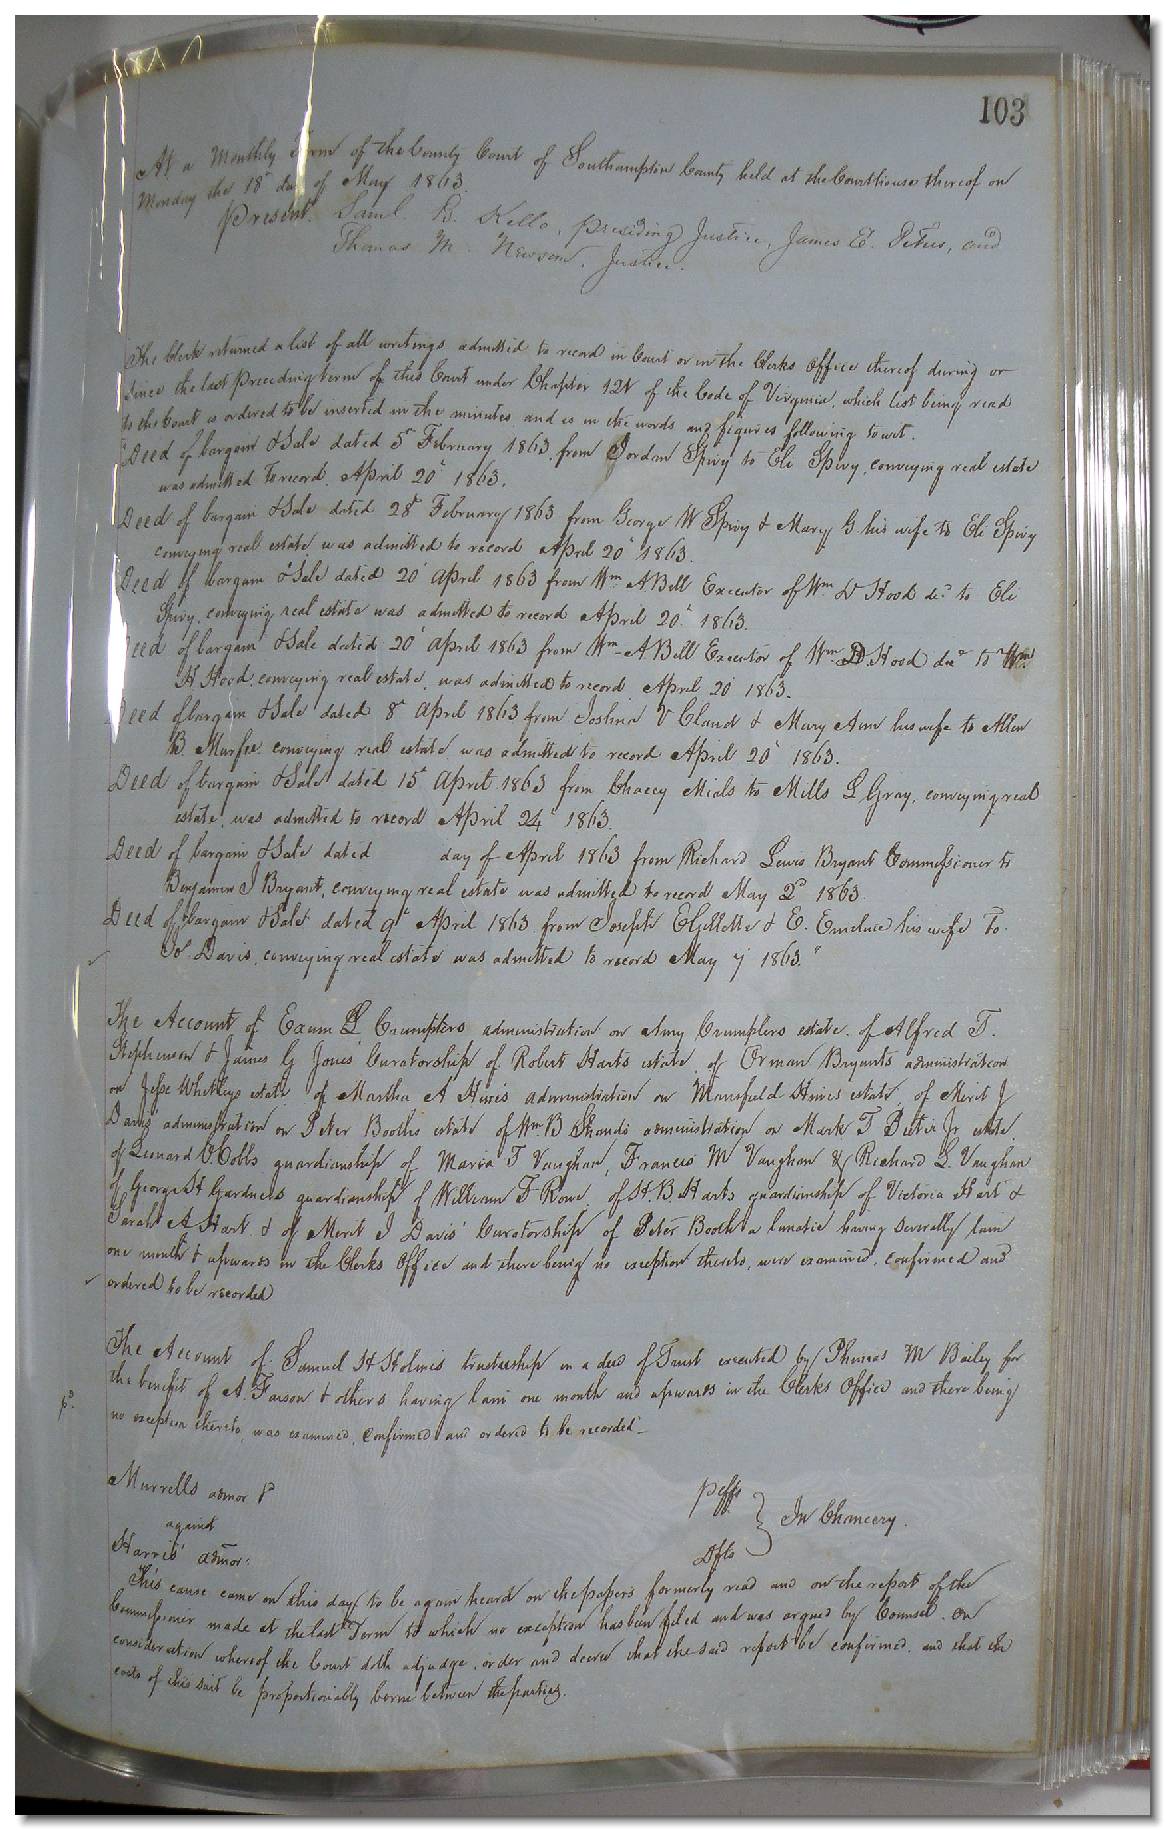 103
At a Monthly Term of the County Court of Southampton County held at the Courthouse thereof on
Monday the 18th day of May 1863.
Present. Saml. B. Kello, Presiding Justice, James E. and
Thomas M. Newsom, Justices.
The Clerk returned a list of all writings admitted to record in Court or in the Clerks Office thereof during or
since the last preceding term of this Court under Chapter 121 of the Code of Virginia, which list being read
to the Court is ordered to be inserted in the minutes and is in the words and figures following to wit.
"Deed of bargain & Sale dated 5th February 1863, from Jordan Spivy to Eli Spivy, conveying real estate
was admitted to record, April 20th 1863.
Deed of bargain & Sale dated 28th February 1863 from George W Spivy & Mary G his wife to Eli Spivy
conveying real estate was admitted to record April 20th 1863.
Deed of bargain & Sale dated 20th April 1863 from Wm A Bell Executor of Wm D Hood decd to Eli
Spivy, conveying real estate was admitted to record April 20th 1863.
Deed of bargain & Sale dated 20th April 1863 from Wm A Bell Executor of Wm D Hood decd to Wm
H Hood, conveying real estate, was admitted to record April 20 1863.
Deed of bargain & Sale dated 8th April 1863 from Joshua V Claud & Mary Ann his wife to Allen
B. Murfee conveying real estate was admitted to record April 20th 1863.
Deed of bargain & Sale dated 15th April 1863 from Chacey Mials to Mills L Gray, conveying real
estate, was admitted to record April 24th 1863.
Deed of bargain & Sale dated day of April 1863 from Richard Lewis Bryant Commissioner to
Benjamin J Bryant, conveying real estate was admitted to record May 2d 1863
Deed of bargain & Sale dated 9th April 1863 from Joseph E Gillette & E. his wife To
Davis, conveying real estate was admitted to record May 7 1863."
The Account of Exum L Crumplers administration on Amy Crumplers estate. of Alfred T.
Stephenson & James G Jones Curatorship of Robert Harts estate, of Orman Bryants administration
on Jesse Whitleys estate of Martha A Hines administration on Mansfield Hines estate, of Merit J
Davis administration on Peter Booths estate of Wm B Shands administration on Mark T Peete Jr estate
of Leonard O. Cobbs guardianship of Maria T Vaughan, Francis M Vaughan & Richard L. Vaughan
of George H Gardners guardianship of William F Rowe, of H. B. Harts guardianship of Victoria Hart &
Sarah A Hart & of Merit J Davis' Curatorship of Peter Booth a lunatic having severally lain
one month & upwards in the Clerks Office and there being no exception thereto, were examined, confirmed and
ordered to be recorded
The Account of Samuel H Holmes trusteeship in a deed of Trust executed by Phineas M Bailey for
the benefit of A. Fason & others having lain one month and upwards in the Clerks Office and there being
no exception thereto, was examined, confirmed and ordered to be recorded
Murrells admor Plffs
against In Chancery.
Harris' admor: Dfts
This cause came on this day to be again heard on the papers formerly read and on the report of the
Commissioner made at the last Term to which no exception has been filed and was argued by Counsel. On
consideration whereof the Court doth adjudge, order and decree that the said report be confirmed, and that the
costs of this suit be proportionably borne between the parties.